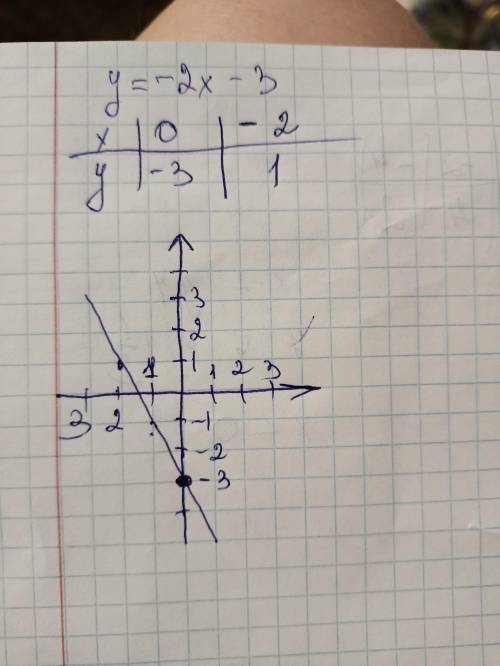 y = -2x - 3
x | 0 | - 2
y | -3 | 1
3
2
1
1
1 2 3
3 2
-1
-2
-3